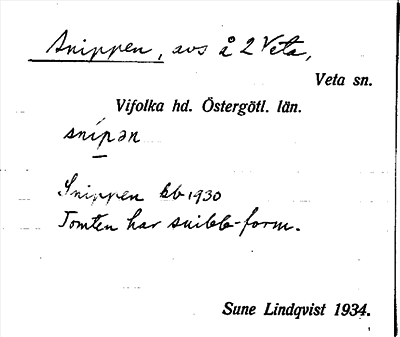 Snippen, avs å 2 Veta,
Veta sn.
Vifolka hd. Östergötl. län.
snípən
Snippen kb 1930
Tomten har snibb-form.
Sune Lindqvist 1934.